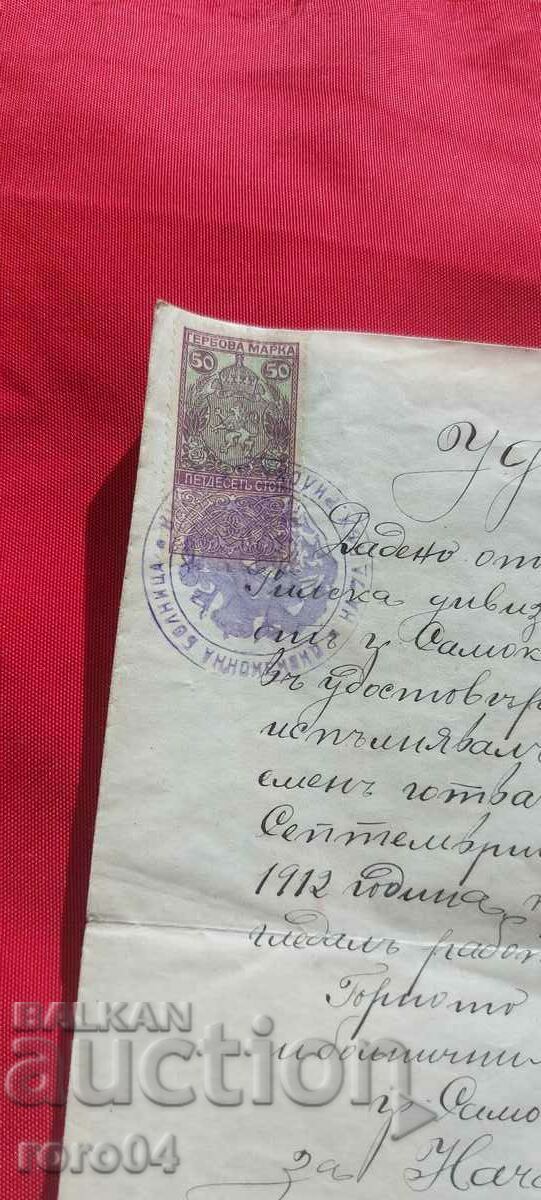 ГЕРБОВА МАРКА
50 50
ПЕТДЕСЕТЬ СТОТ
ДИВИЗИОННА БОЛНИЦА
Уд
Дадено отъ
Рилска дивиз
отъ г. Самок
въ удостовѣр
испълнявалъ
еменъ готва
Септемврий
1912 година
гледалъ работ
Горното
и болнични
гр. Само
за Нача
BALKAN
auction
roro04